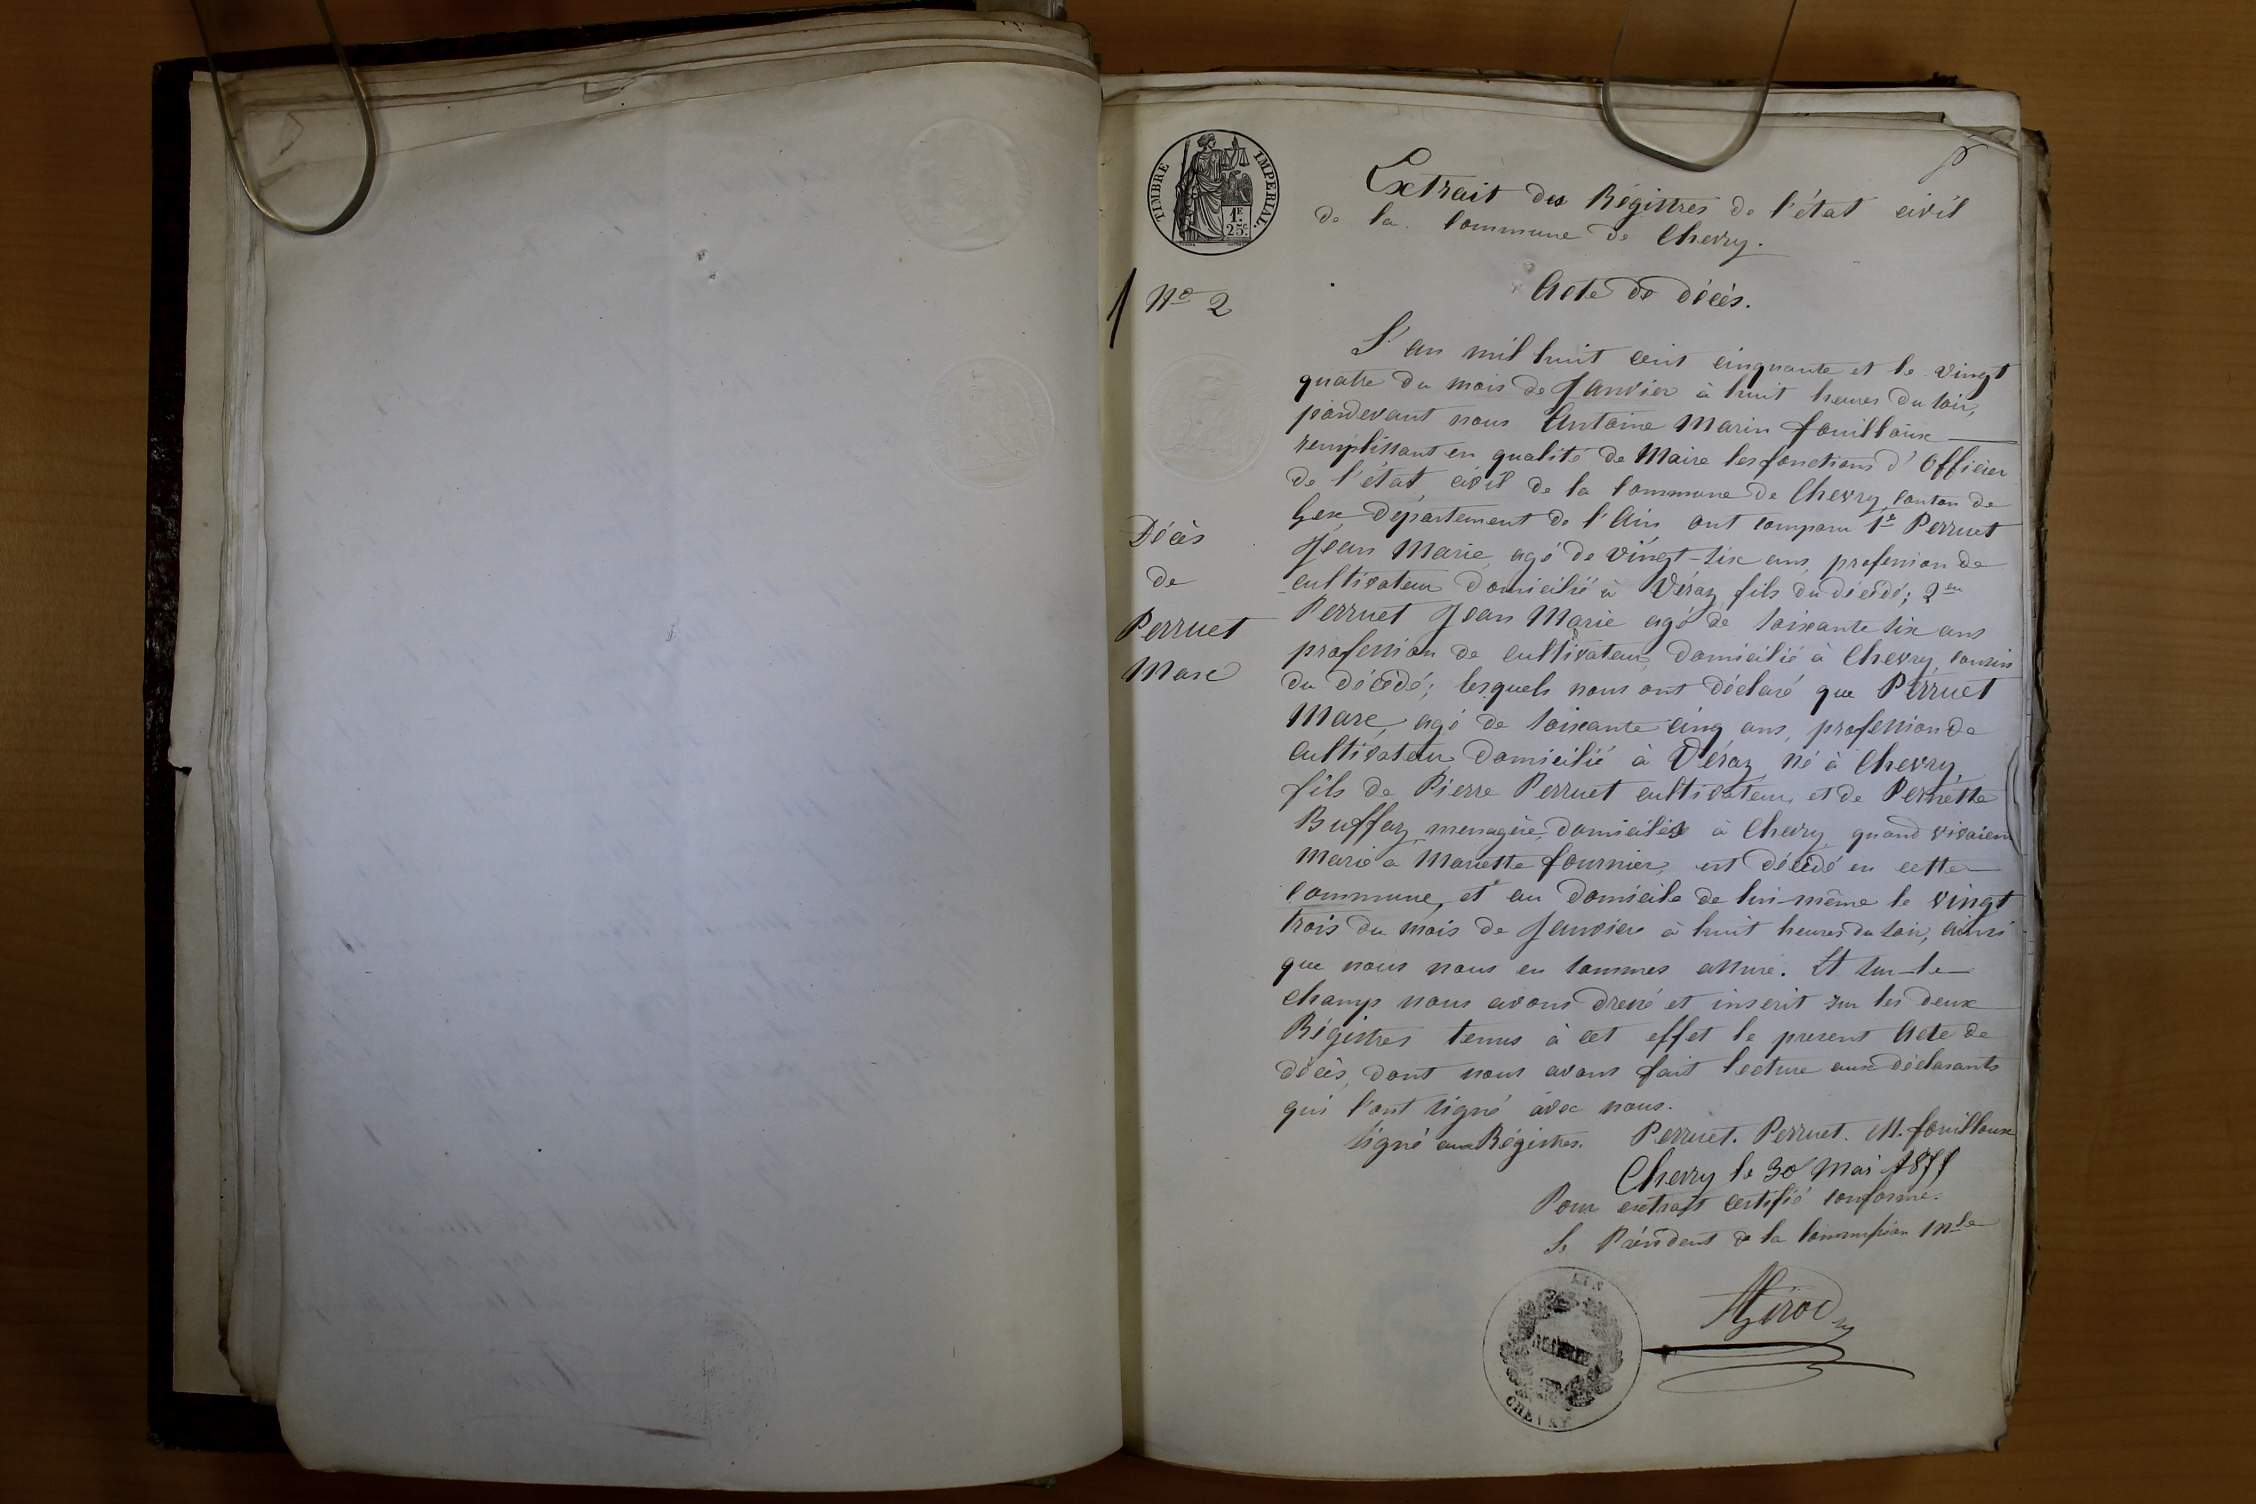 TIMBRE IMPERIAL.
1F.
25c.
Extrait des Régistres de l'état civil
de la Commune de Chevry.
Acte de décès.
No 2
Décès
de
Perruet
Marc
L'an mil huit cent cinquante et le vingt
quatre du mois de Janvier à huit heures du soir,
pardevant nous Antoine Marin fouilloux
remplissant en qualité de Maire les fonctions d'Officier
de l'état civil de la Commune de Chevry, canton de
Gex département de l'Ain ont comparu 1e Perruet
Jean Marie, agé de vingt-six ans, profession de
cultivateur domicilié à Véraz, fils du décédé; 2em
Perruet Jean Marie agé de soixante six ans
profession de cultivateur domicilié à Chevry, cousin
du décédé; lesquels nous ont déclaré que Perruet
Marc, agé de soixante cinq ans, profession de
cultivateur, domicilié à Véraz, né à Chevry,
fils de Pierre Perruet cultivateur, et de Pernette
Buffaz, menagère, domiciliés à Chevry quand vivaient
marié à Mariette fournier, est décédé en cette
Commune, et au domicile de lui-même le vingt
trois du mois de Janvier à huit heures du soir, ainsi
que nous nous en sommes assuré. Et sur-le-
champ nous avons dressé et inscrit sur les deux
Régistres tenus à cet effet le present Acte de
décès, dont nous avons fait lecture aux déclarants
qui l'ont signé avec nous.
Signé aux Régistres. Perruet. Perruet. M. fouilloux
Chevry le 30 Mai 1871
Pour extrait certifié conforme.
Le Président de la Commission Mle
Girod
AIN
MAIRIE
CHEVRY